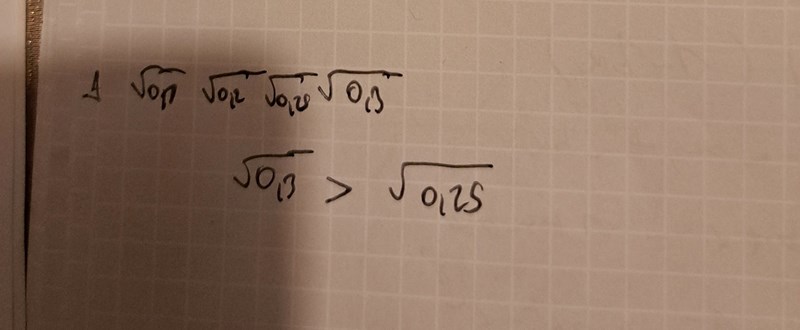 1 √0,11 √0,2 √0,25 √0,3
√0,3 > √0,25